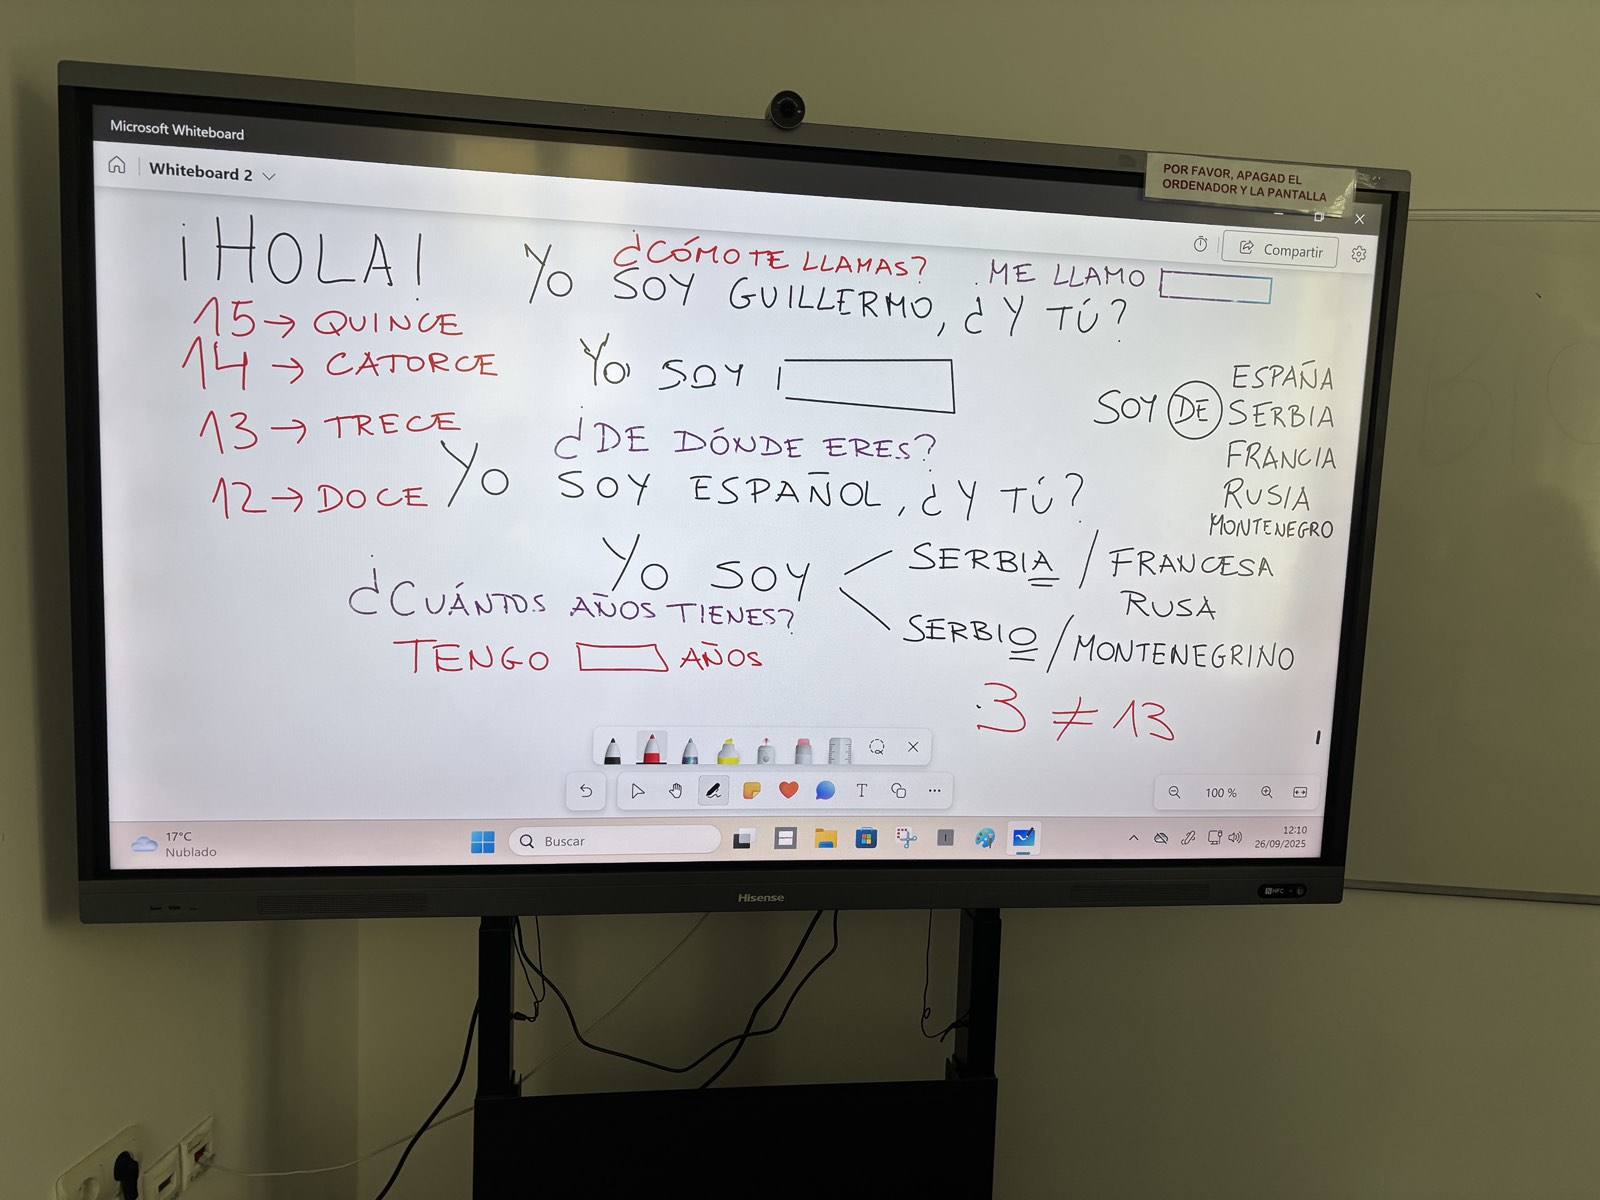 Microsoft Whiteboard
Whiteboard 2
POR FAVOR, APAGAD EL
ORDENADOR Y LA PANTALLA
Compartir
¡HOLA!
15→ QUINCE
14 → CATORCE
13 → TRECE
12 → DOCE
¿CÓMO TE LLAMAS?
ME LLAMO
YO SOY GUILLERMO, ¿Y TÚ?
YO SOY
¿DE DÓNDE ERES?
YO SOY ESPAÑOL, ¿Y TÚ?
SOY DE
ESPAÑA
SERBIA
FRANCIA
RUSIA
MONTENEGRO
YO SOY
SERBIA / FRANCESA
RUSA
SERBIO / MONTENEGRINO
¿CUÁNTOS AÑOS TIENES?
TENGO AÑOS
3 ≠ 13
T
100 %
17°C
Nublado
Buscar
12:10
26/09/2025
Hisense
NFC